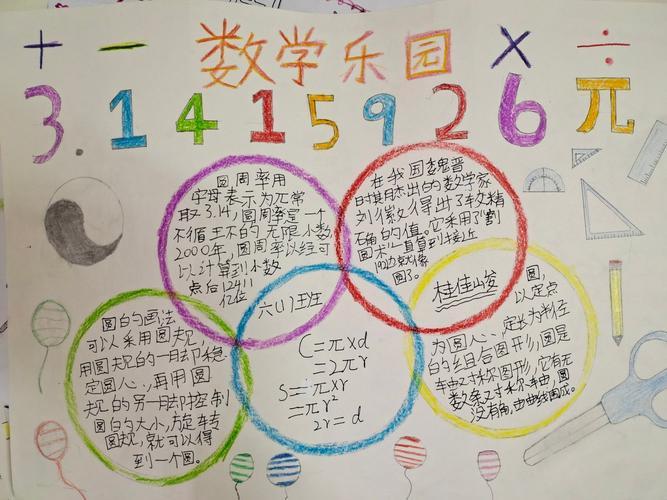 + − 数学乐园 × ÷
3.1415926 π
圆周率用
字母表示为π常
取3.14,圆周率是一个
不循环的无限小数,
2000年,圆周率以经可
以计算到小数
点后12411
亿位
在我国魏晋
时期杰出的数学家
刘徽得出了较精
确的值。它采用了"割
圆术"一直算到接近
192边就像
圆了。
六(1)班
桂佳峻
圆的画法
可以采用圆规,
用圆规的一脚稳
定圆心,再用圆
规的另一脚控制
圆的大小,旋转
圆规,就可以得
到一个圆。
C=π×d
=2πr
S=π×r
=πr²
2r=d
圆,
以定点
为圆心、定长为半径
的组合图形,圆是
轴对称图形,它有无
数条对称轴,圆
没有角,由曲线围成。